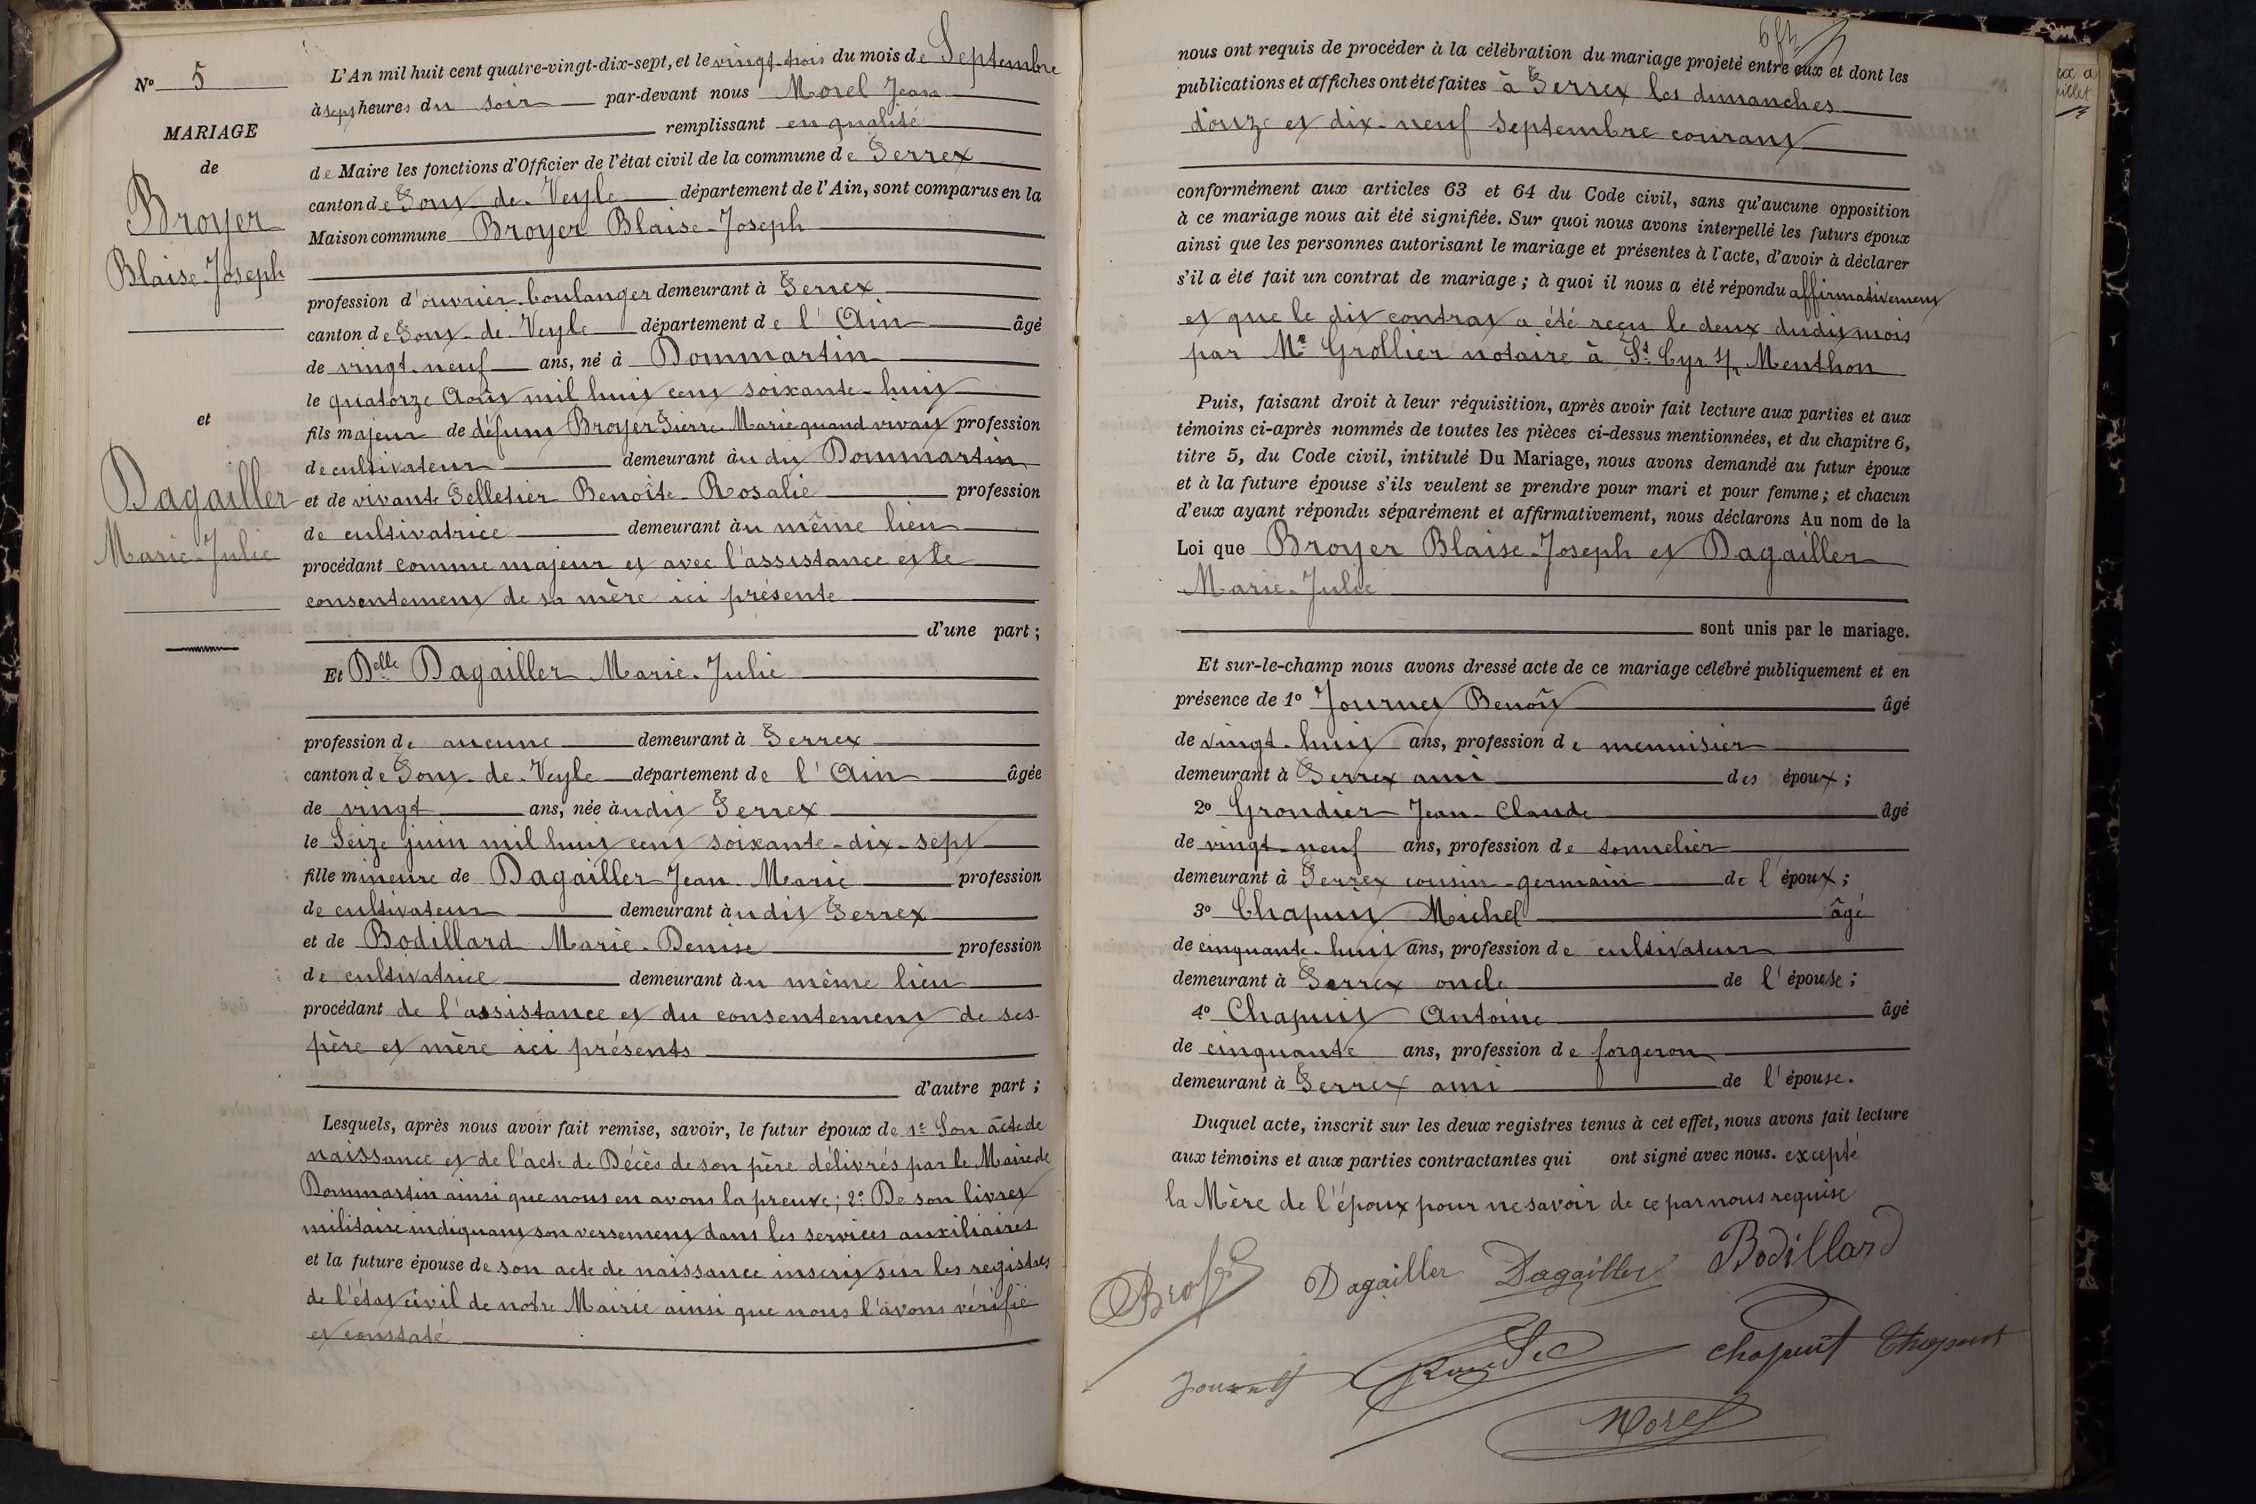 N° 5
MARIAGE
de
Broyer
Blaise-Joseph
et
Dagailler
Marie-Julie
L'An mil huit cent quatre-vingt-dix-sept, et le vingt-trois du mois de Septembre
à sept heures du soir par-devant nous Morel Jean
remplissant en qualité
de Maire les fonctions d'Officier de l'état civil de la commune de Perrex
canton de Pont-de-Veyle département de l'Ain, sont comparus en la
Maison commune Broyer Blaise-Joseph
profession d'ouvrier-boulanger demeurant à Perrex
canton de Pont-de-Veyle département de l'Ain âgé
de vingt-neuf ans, né à Dommartin
le quatorze Août mil huit cent soixante-huit
fils majeur de défunt Broyer Pierre-Marie quand vivait profession
de cultivateur demeurant àudit Dommartin
et de vivante Pelletier Benoîte-Rosalie profession
de cultivatrice demeurant àu même lieu
procédant comme majeur et avec l'assistance et le
consentement de sa mère ici présente
d'une part ;
Et Delle Dagailler Marie-Julie
profession de aucune demeurant à Perrex
canton de Pont-de-Veyle département de l'Ain âgée
de vingt ans, née àudit Perrex
le Seize juin mil huit cent soixante-dix-sept
fille mineure de Dagailler Jean-Marie profession
de cultivateur demeurant àudit Perrex
et de Bodillard Marie-Denise profession
de cultivatrice demeurant àu même lieu
procédant de l'assistance et du consentement de ses
père et mère ici présents
d'autre part ;
Lesquels, après nous avoir fait remise, savoir, le futur époux de 1° Son acte de
naissance et de l'acte de Décès de son père délivrés par le Maire de
Dommartin ainsi que nous en avons la preuve ; 2° De son livret
militaire indiquant son versement dans les services auxiliaires
et la future épouse de son acte de naissance inscrit sur les registres
de l'état civil de notre Mairie ainsi que nous l'avons vérifié
et constaté
nous ont requis de procéder à la célébration du mariage projeté entre eux et dont les
publications et affiches ont été faites à Perrex les dimanches
douze et dix-neuf septembre courant
conformément aux articles 63 et 64 du Code civil, sans qu'aucune opposition
à ce mariage nous ait été signifiée. Sur quoi nous avons interpellé les futurs époux
ainsi que les personnes autorisant le mariage et présentes à l'acte, d'avoir à déclarer
s'il a été fait un contrat de mariage ; à quoi il nous a été répondu affirmativement
et que le dit contrat a été reçu le deux dudit mois
par Me Grollier notaire à St Cyr s/ Menthon
Puis, faisant droit à leur réquisition, après avoir fait lecture aux parties et aux
témoins ci-après nommés de toutes les pièces ci-dessus mentionnées, et du chapitre 6,
titre 5, du Code civil, intitulé Du Mariage, nous avons demandé au futur époux
et à la future épouse s'ils veulent se prendre pour mari et pour femme ; et chacun
d'eux ayant répondu séparément et affirmativement, nous déclarons Au nom de la
Loi que Broyer Blaise-Joseph et Dagailler
Marie-Julie
sont unis par le mariage.
Et sur-le-champ nous avons dressé acte de ce mariage célébré publiquement et en
présence de 1° Journet Benoît âgé
de vingt-huit ans, profession de menuisier
demeurant à Perrex ami des époux ;
2° Grondier Jean-Claude âgé
de vingt-neuf ans, profession de tonnelier
demeurant à Perrex cousin-germain de l'époux ;
3° Chapuit Michel âgé
de cinquante-huit ans, profession de cultivateur
demeurant à Perrex oncle de l'épouse ;
4° Chapuit Antoine âgé
de cinquante ans, profession de forgeron
demeurant à Perrex ami de l'épouse.
Duquel acte, inscrit sur les deux registres tenus à cet effet, nous avons fait lecture
aux témoins et aux parties contractantes qui ont signé avec nous. excepté
la Mère de l'époux pour ne savoir de ce par nous requise
Dagailler Dagailler Bodillard
Journet Chapuit Chapuit
Morel